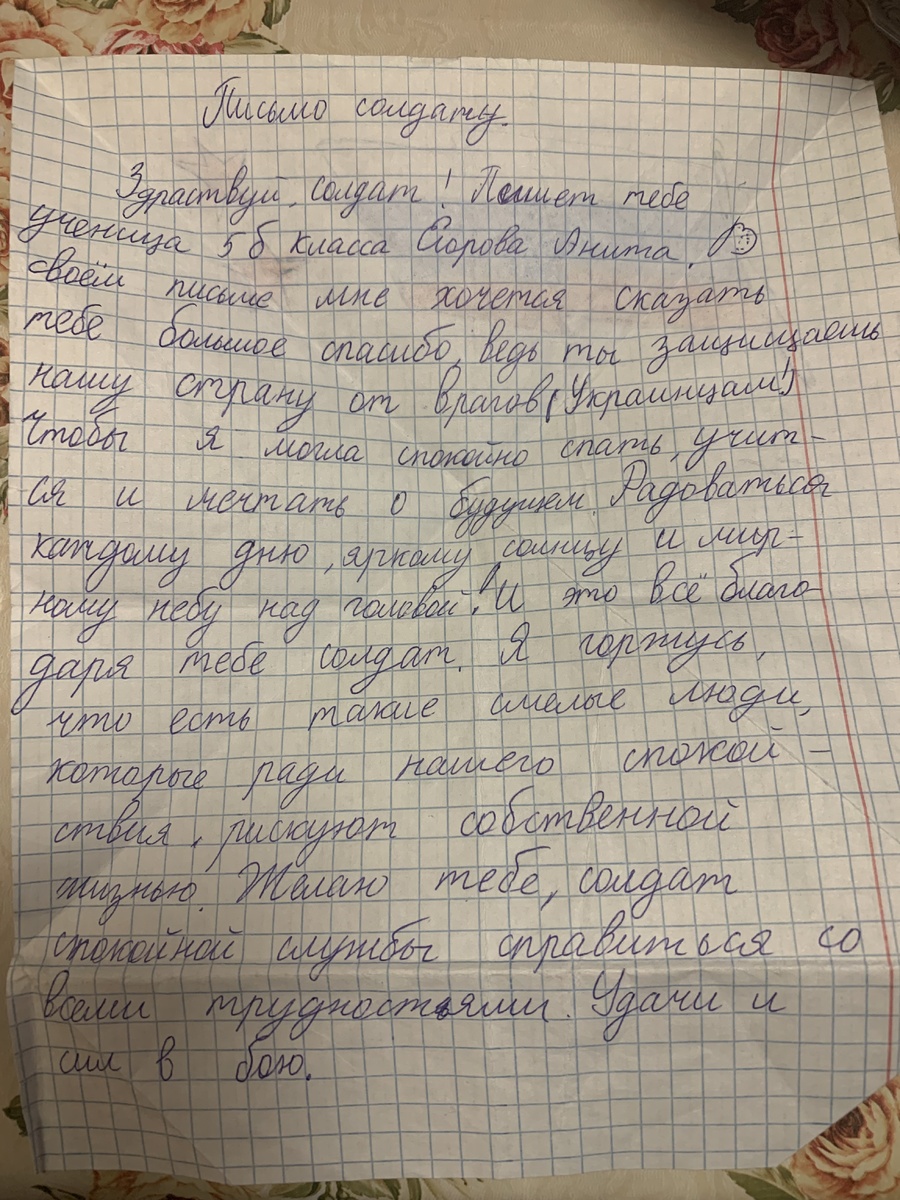 Письмо солдату.
Здраствуй, солдат! Пишет тебе
ученица 5б класса Егорова Анита. В
своём письме мне хочется сказать
тебе большое спасибо, ведь ты защищаешь
нашу страну от врагов (Украинцам!)
Чтобы я могла спокойно спать, учит-
ся и мечтать о будущем. Радоваться
каждому дню, яркому солнцу и мир-
ному небу над головой! И это всё благо-
даря тебе солдат. Я горжусь,
что есть такие смелые люди,
которые ради нашего спокой-
ствия, рискуют собственной
жизнью. Желаю тебе, солдат
спокойной службы справиться со
всеми трудностьями. Удачи и
сил в бою.